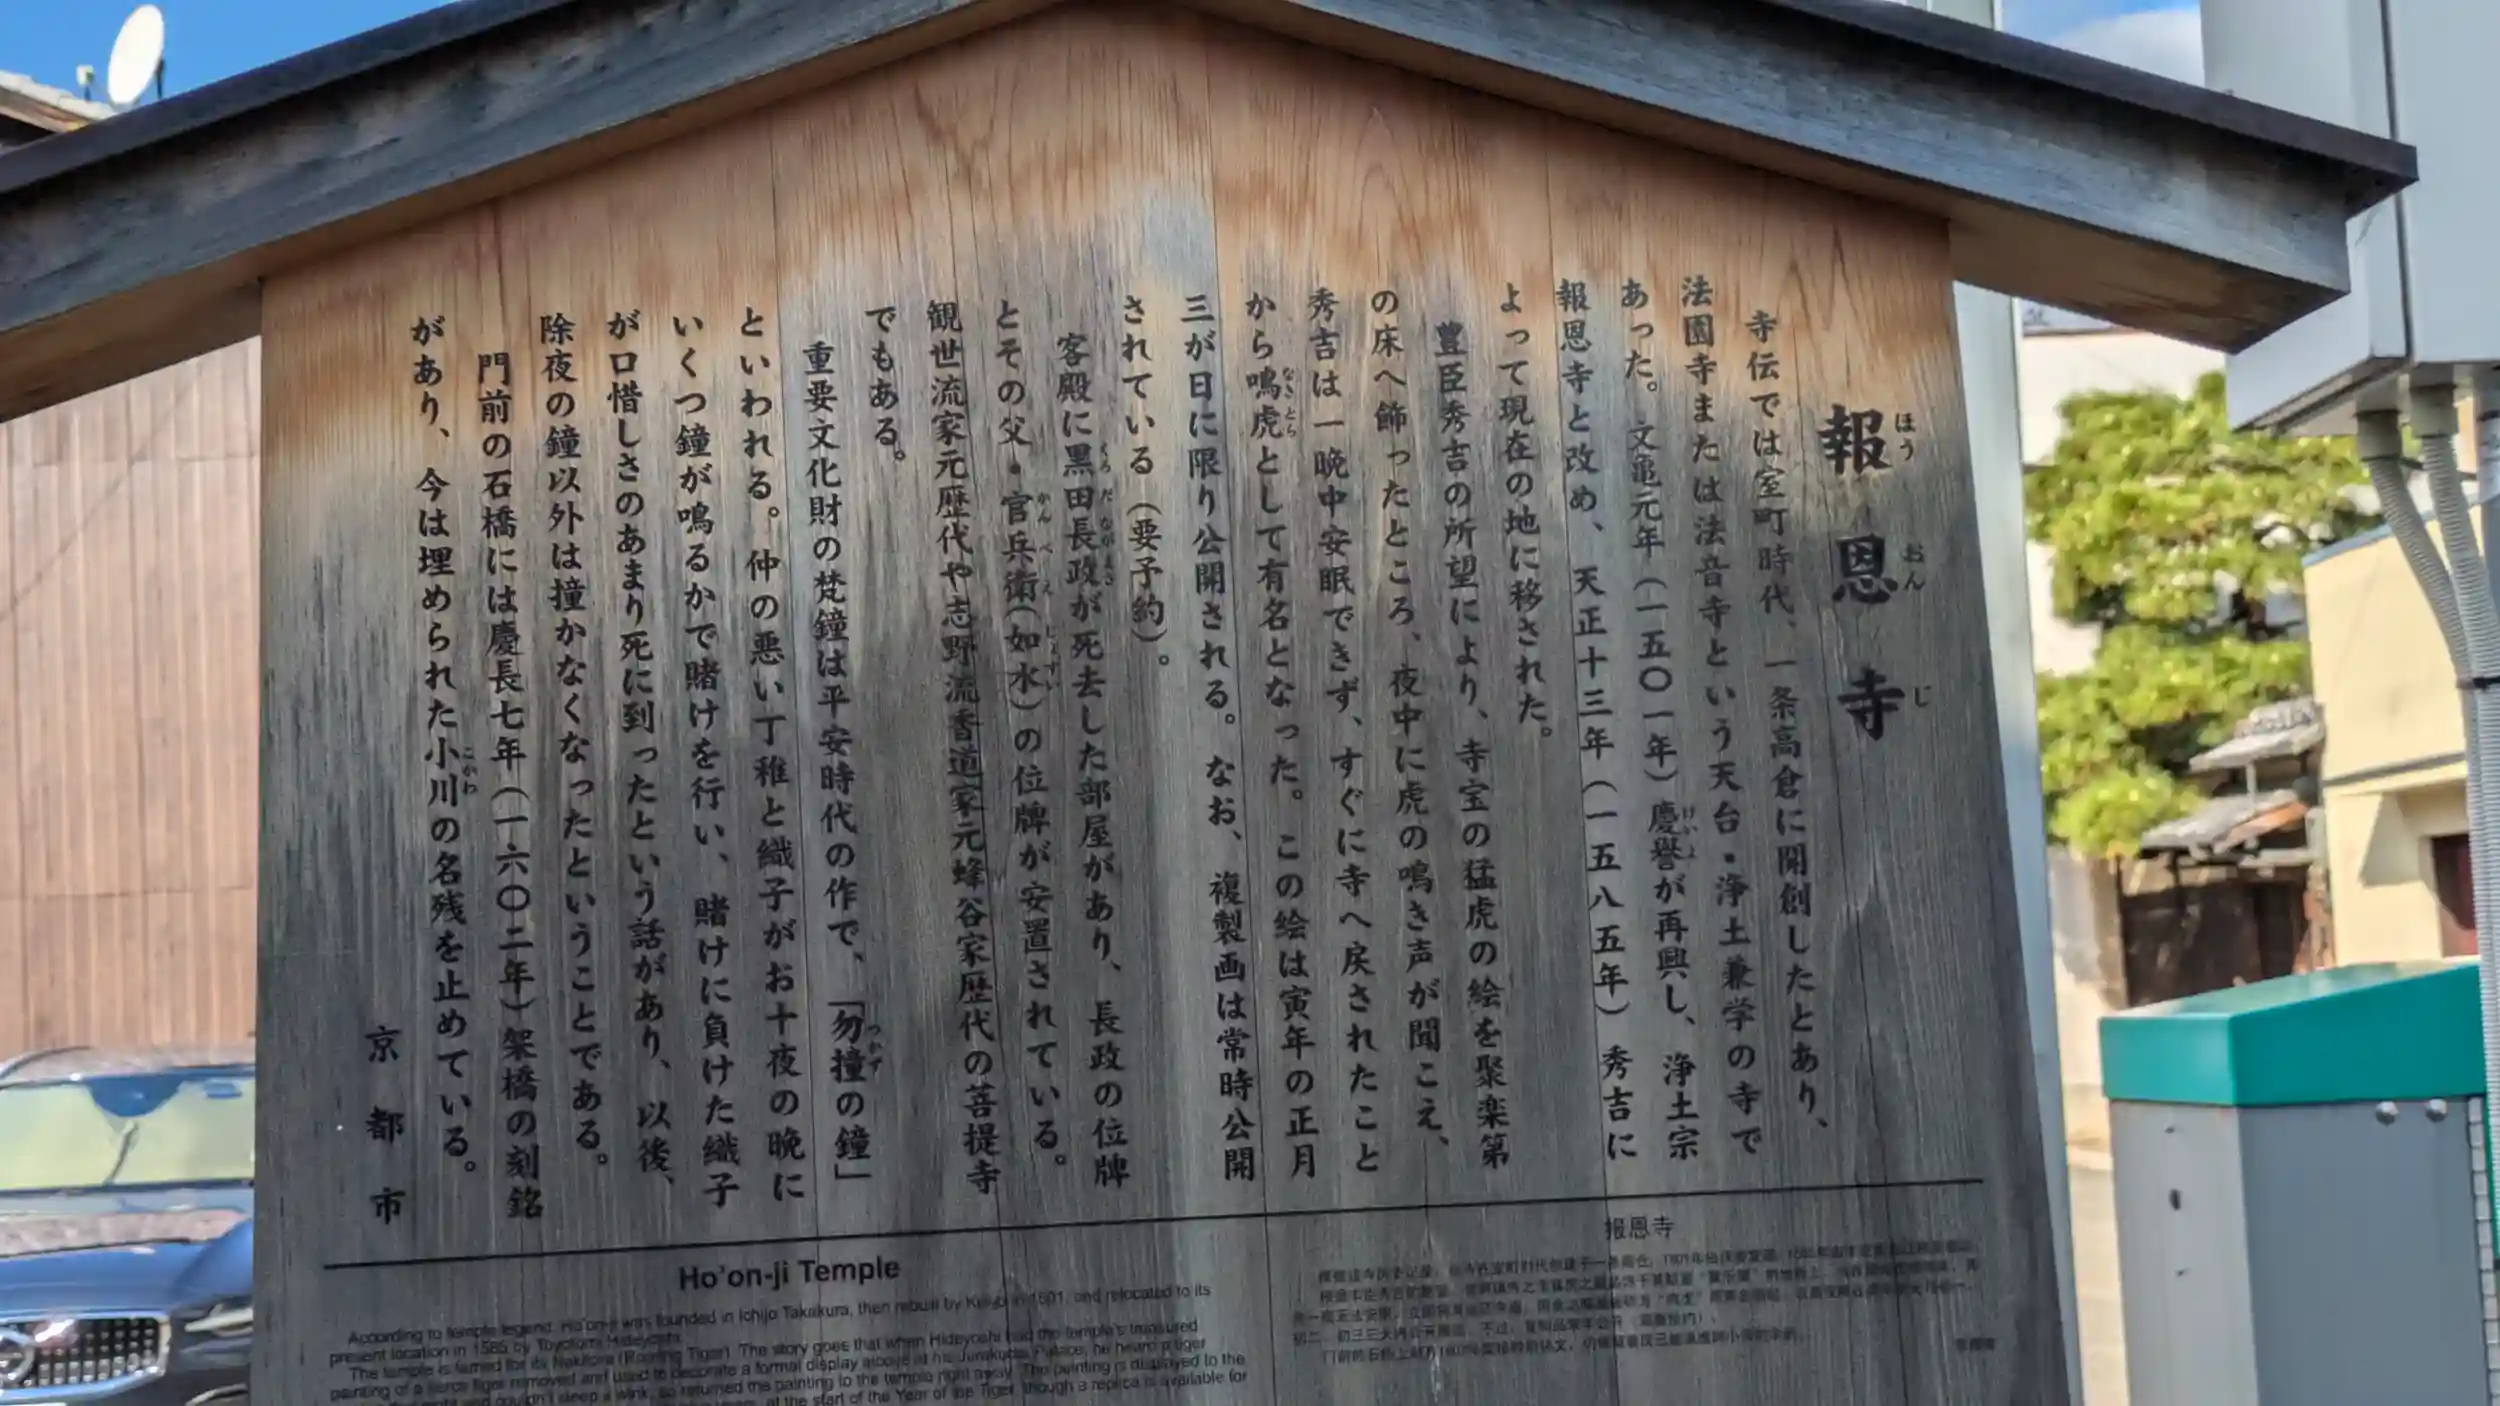 報恩寺
ほうおんじ
寺伝では室町時代、一条高倉に開創したとあり、
法園寺または法音寺という天台・浄土兼学の寺で
あった。文亀元年(一五〇一年)慶誉が再興し、浄土宗
けいよ
報恩寺と改め、天正十三年(一五八五年)秀吉に
よって現在の地に移された。
豊臣秀吉の所望により、寺宝の猛虎の絵を聚楽第
の床へ飾ったところ、夜中に虎の鳴き声が聞こえ、
秀吉は一晩中安眠できず、すぐに寺へ戻されたこと
から鳴虎として有名となった。この絵は寅年の正月
なきとら
三が日に限り公開される。なお、複製画は常時公開
されている(要予約)。
客殿に黒田長政が死去した部屋があり、長政の位牌
くろだながまさ
とその父・官兵衛(如水)の位牌が安置されている。
かんべえ じょすい
観世流家元歴代や志野流香道家元蜂谷家歴代の菩提寺
でもある。
重要文化財の梵鐘は平安時代の作で、「勿撞の鐘」
つかず
といわれる。仲の悪い丁稚と織子がお十夜の晩に
いくつ鐘が鳴るかで賭けを行い、賭けに負けた織子
が口惜しさのあまり死に到ったという話があり、以後、
除夜の鐘以外は撞かなくなったということである。
門前の石橋には慶長七年(一六〇二年)架橋の刻銘
があり、今は埋められた小川の名残を止めている。
こかわ
京都市
Ho'on-ji Temple
According to temple legend, Ho'on-ji was founded in Ichijo Takakura, then rebuilt by Keiyo in 1501, and relocated to its
present location in 1585 by Toyotomi Hideyoshi.
The temple is famed for its Nakitora (Roaring Tiger). The story goes that when Hideyoshi had the temple's treasured
painting of a fierce tiger removed and used to decorate a formal display alcove at his Jurakudai Palace, he heard a tiger
couldn't sleep a wink, so returned the painting to the temple right away. The painting is displayed to the
at the start of the Year of the Tiger, though a replica is available for
报恩寺